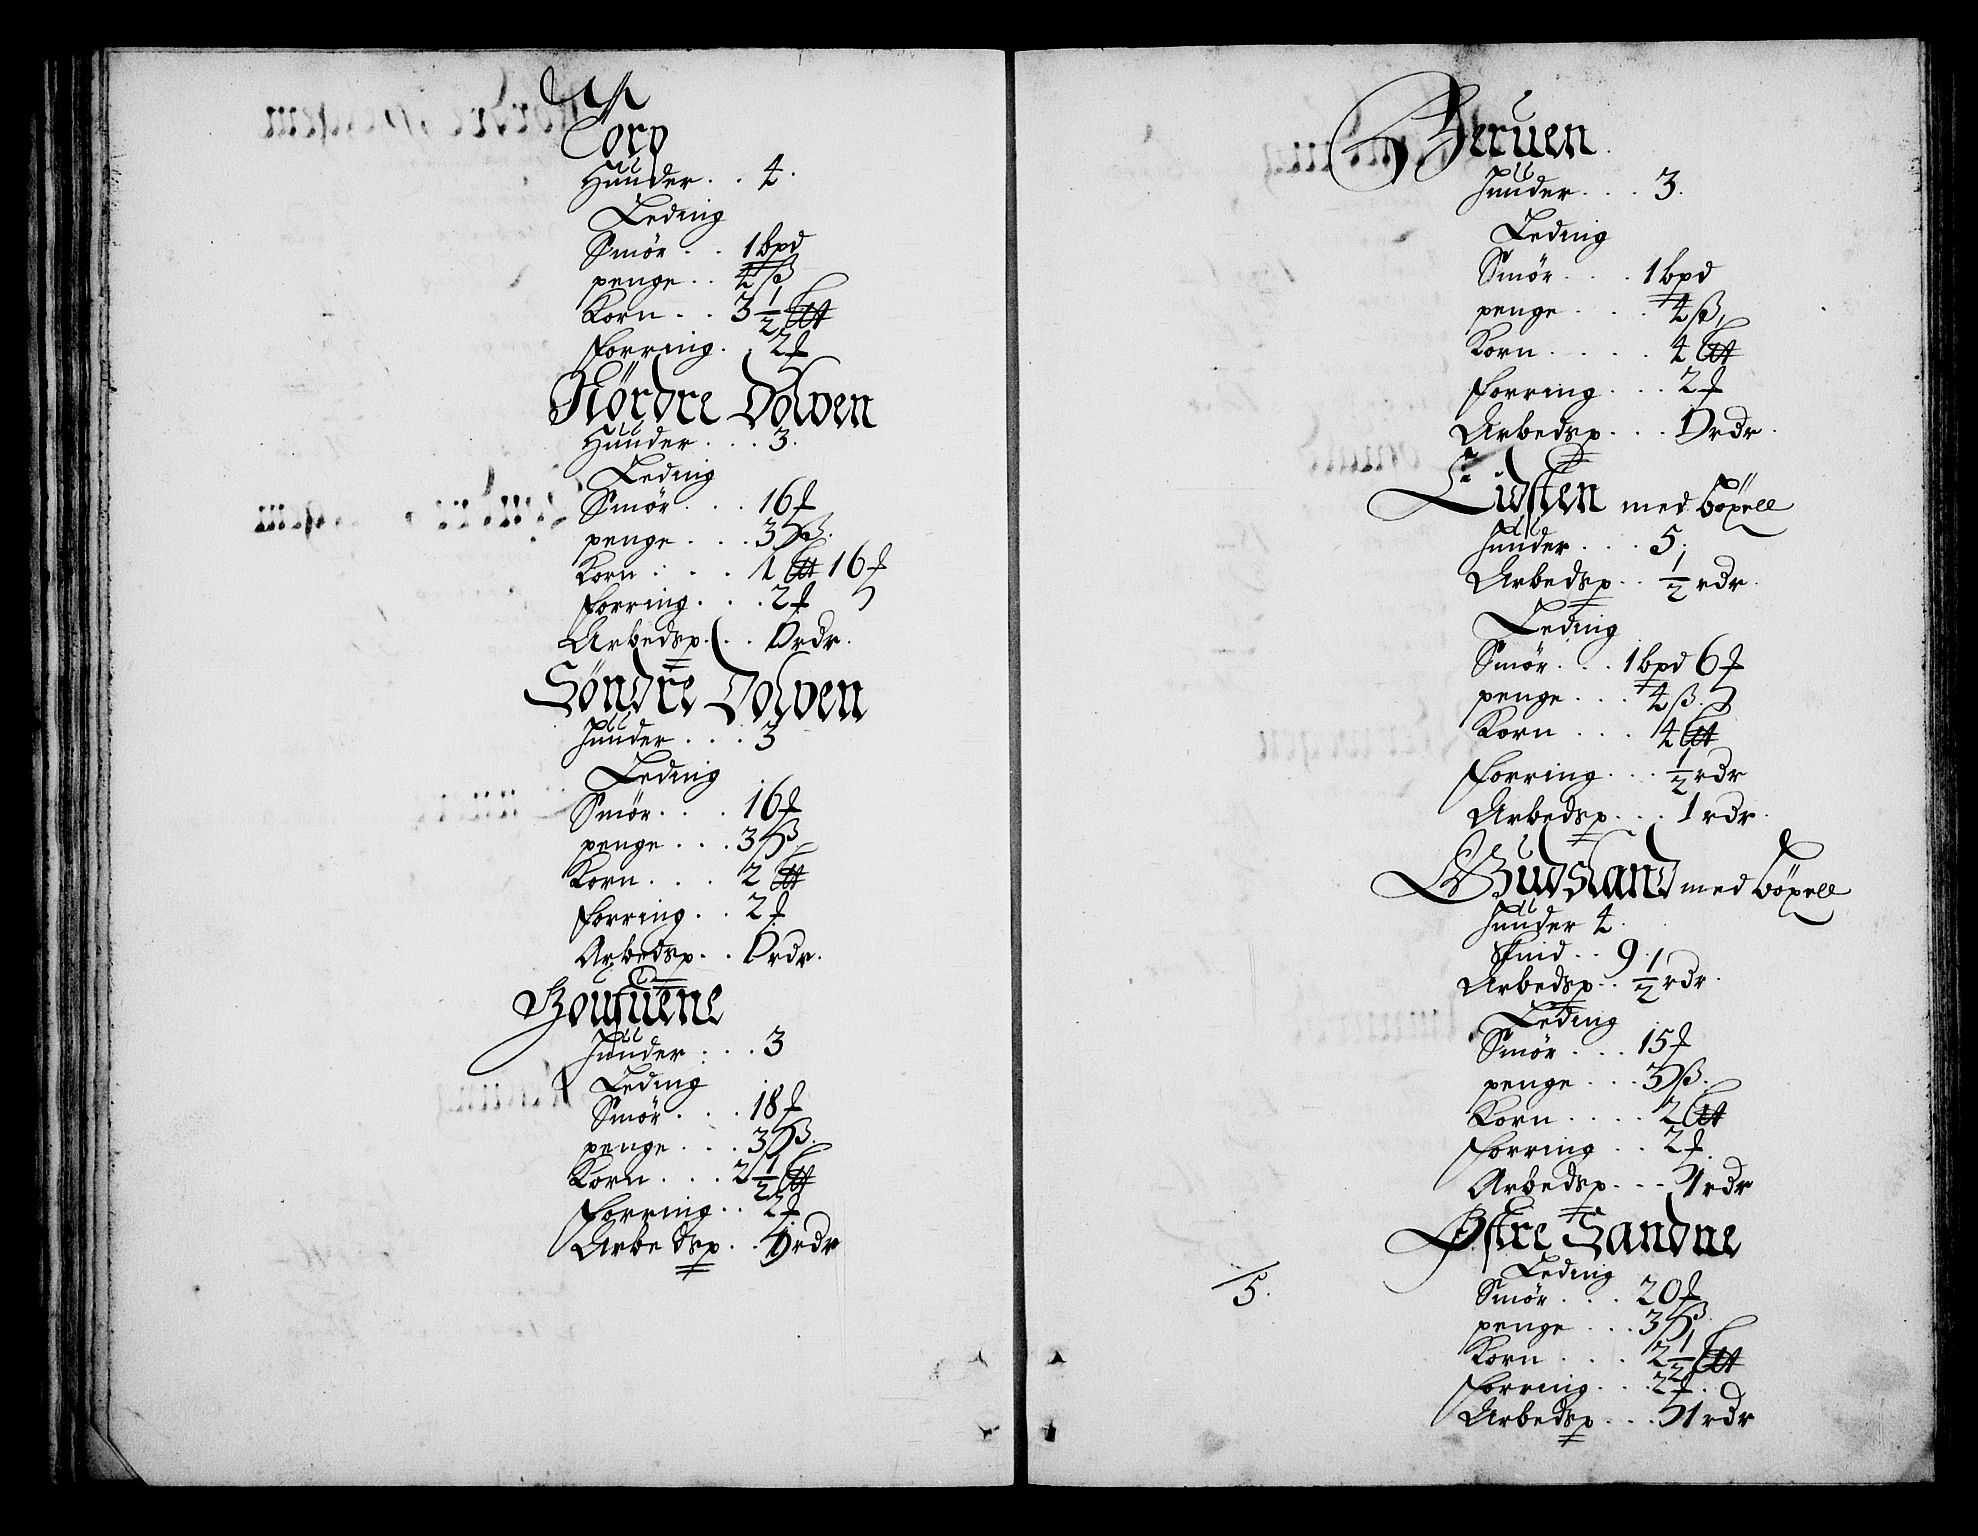 Torp
Huuder . . 4.
Leding
Smör . . 1 bpd
penge . . 4 ß
Korn . . 3 1/2 Lit
forring . . 2 f
Nördre Dolven
Huuder . . . 3.
Leding
Smör . . . 16 f
penge . . . 3 ß.
Korn . . . 1 Lit 16 f
forring . . . 2 f
Arbedsp. . . 1 rdr.
Söndre Dolven
Huuder . . . 3
Leding
Smör . . . 16 f
penge . . . 3 ß
Korn . . . 2 Lit
forring . . 2 f
Arbedsp. . . 1 rdr.
Huuder . . . 3
Leding
Smör . . . 18 f
penge . . . 3 ß.
Korn . . . 2 1/2 Lit
forring . . 2 f
Arbedsp . . 1 rdr
Beruen
Huuder . . . 3.
Leding
Smör . . . 1 bpd
penge . . . 4 ß
Korn . . . . 4 Lit
forring . . . 2 f
Arbedsp . . . 1 rdr.
Lidsten med böxell
Huuder . . . 5.
Arbedsp . . 1/2 rdr.
Leding
Smör . . . 1 bpd 6 f
penge . . . 4 ß.
Korn . . . 4 Lit
forring . . . 1/2 rdr
Arbedsp . . . 1 rdr.
Gudsland med böxell
Huuder 4.
Skind . . 9.
Arbedsp . . 1/2 rdr.
Leding
Smör . . . 15 f
penge . . . 3 ß.
Korn . . . . 2 Lit
forring . . 2 f.
Arbedsp . . . 1 rdr
Østre Sandne
Leding
5.
Smör . . . 20 f
penge . . . 3 ß.
Korn . . . . 2 1/2 Lit
forring . . . 2 f.
Arbedsp . . . 1 rdr